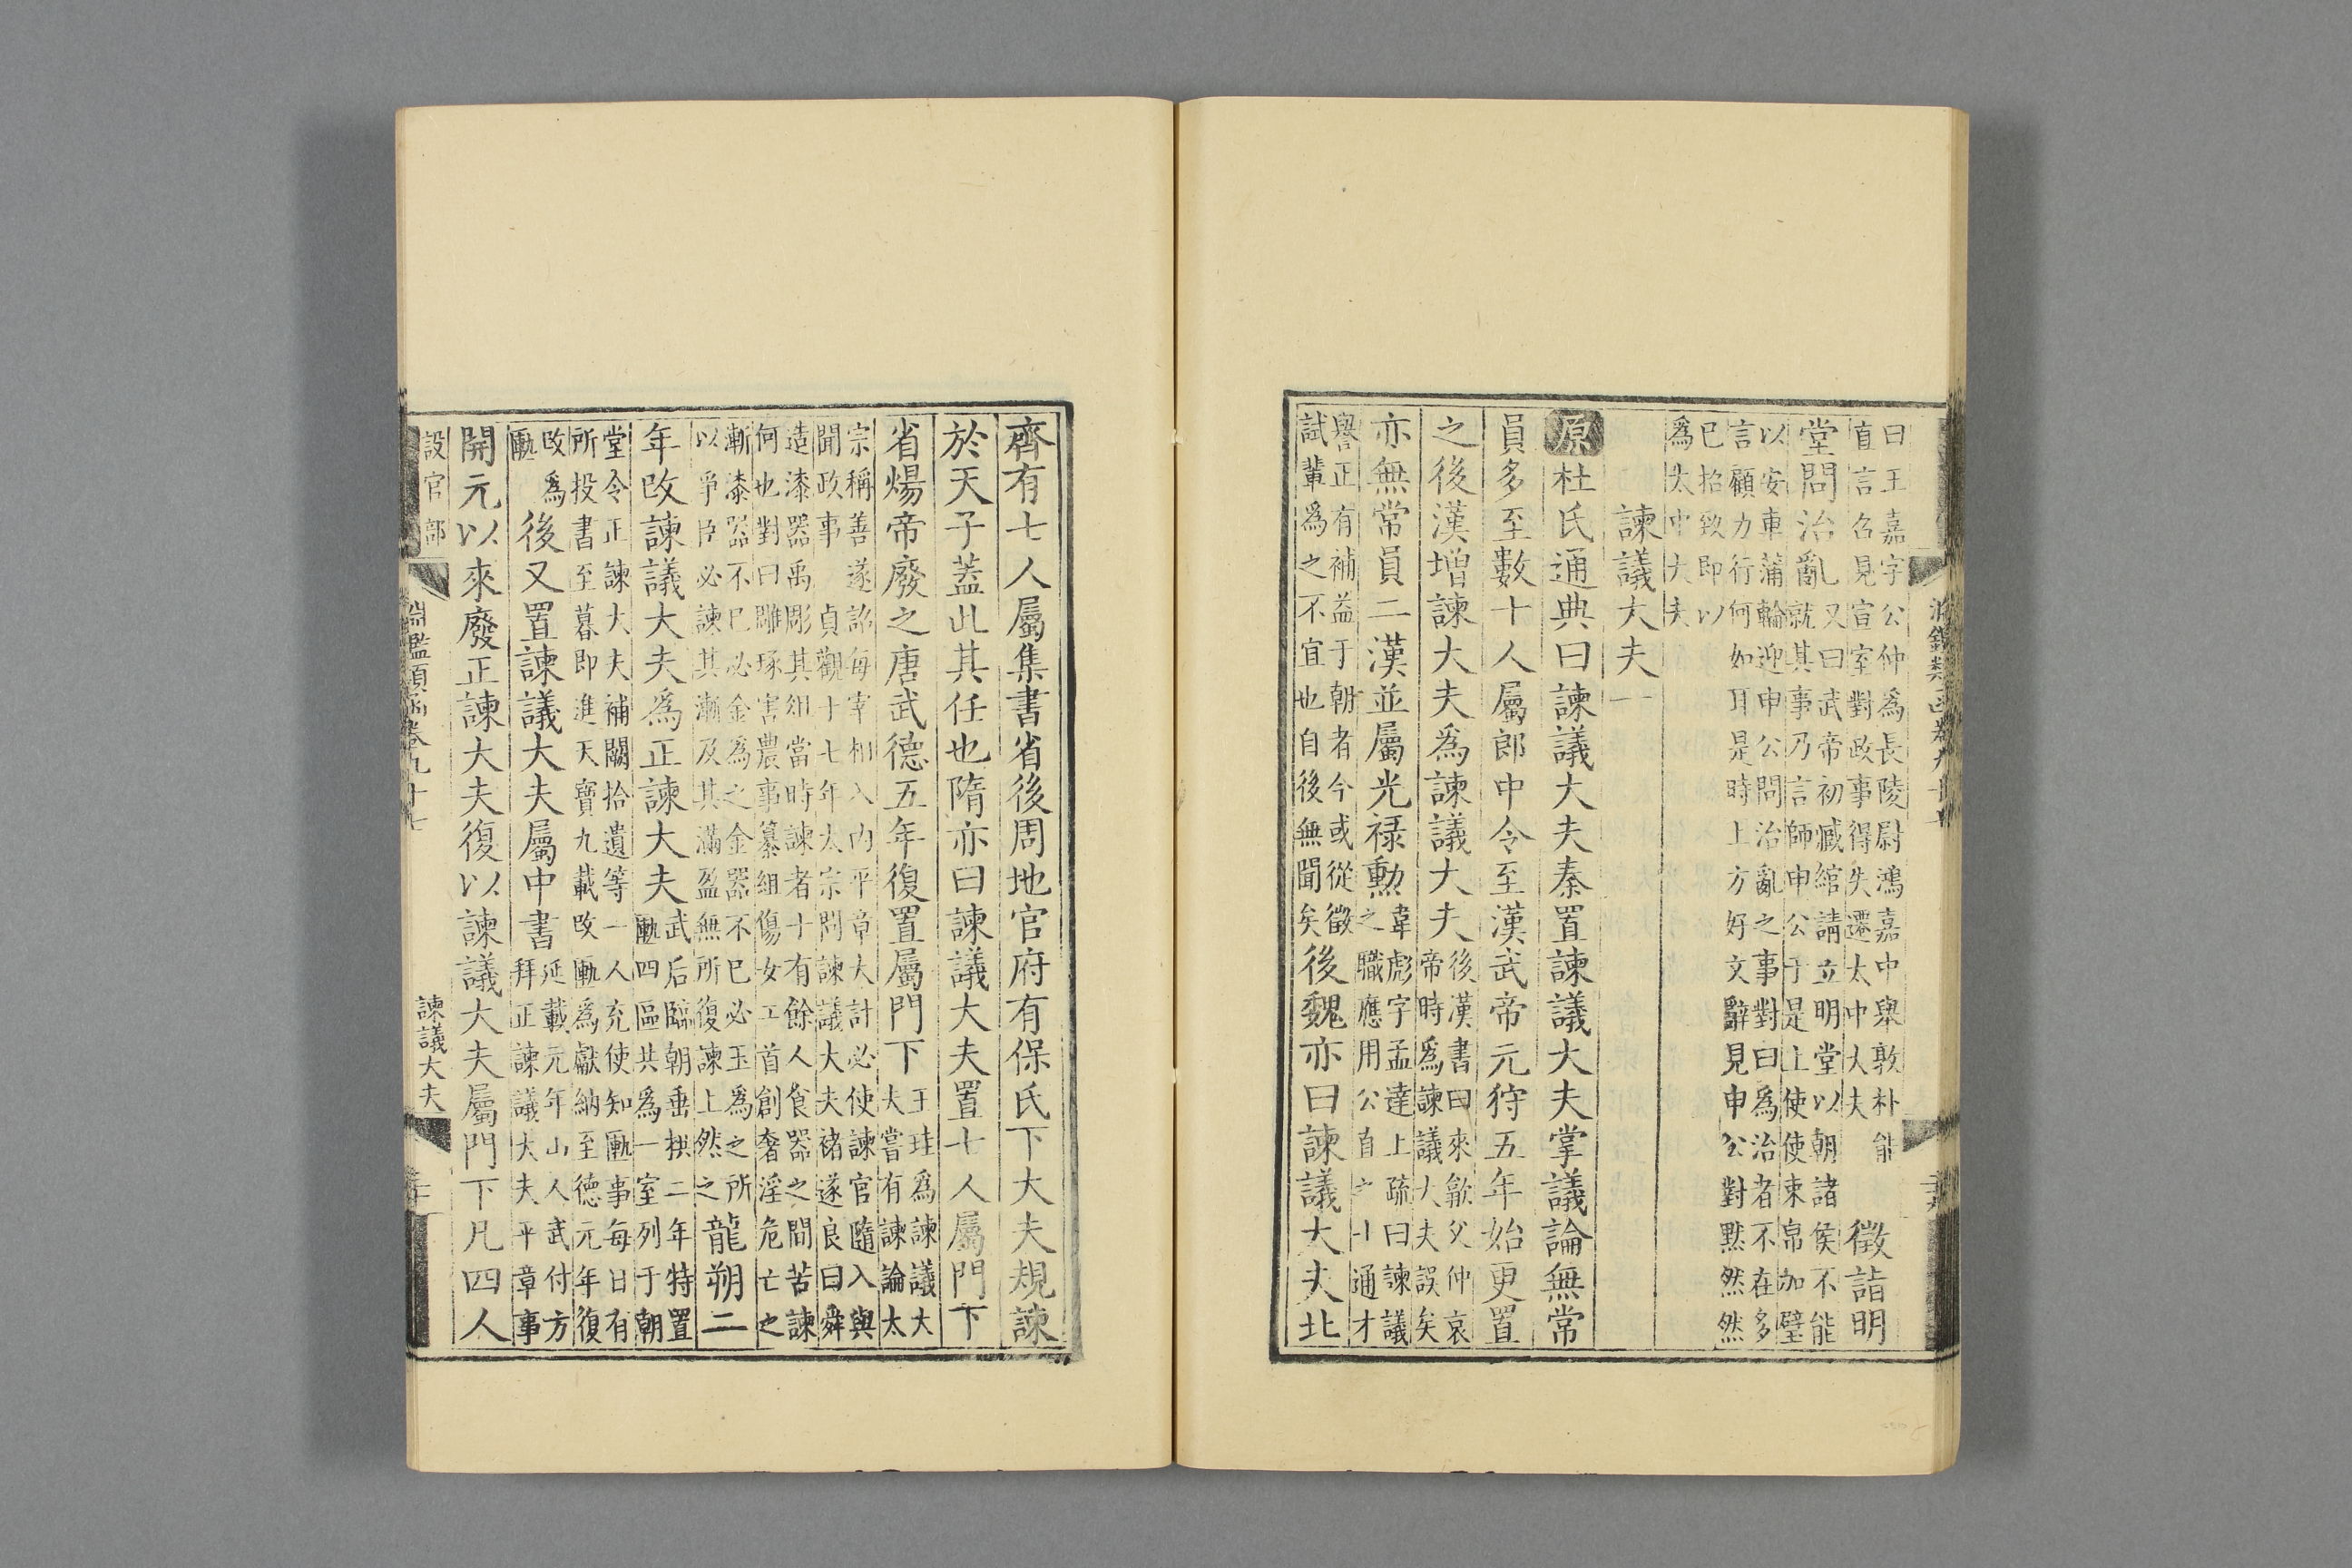 曰王嘉字公仲爲長陵尉鴻嘉中舉敦朴能
直言召見宣室對政事得失遷太中大夫
徵詣明
堂問治亂
又曰武帝初臧綰請立明堂以朝諸侯不能
就其事乃言師申公于是上使使束帛加璧
以安車蒲輪迎申公問治亂之事對曰爲治者不在多
言顧力行何如耳是時上方好文辭見申公對黙然然
已招致即以
爲太中大夫
諫議大夫一
原杜氏通典曰諫議大夫秦置諫議大夫掌議論無常
員多至數十人屬郎中令至漢武帝元狩五年始更置
之後漢增諫大夫爲諫議大夫
後漢書曰來歙父仲哀
帝時爲諫議大夫誤矣
亦無常員二漢並屬光禄勲
韋彪字孟達上疏曰諫議
之職應用公直之士通才
謇正有補益于朝者今或從徵
試輩爲之不宜也自後無聞矣
後魏亦曰諫議大夫北
齊有七人屬集書省後周地官府有保氏下大夫規諫
於天子蓋此其任也隋亦曰諫議大夫置七人屬門下
省煬帝廢之唐武德五年復置屬門下
王珪爲諫議大
夫嘗有諫論太
宗稱善遂詔每宰相入内平章大計必使諫官隨入與
聞政事 貞觀十七年太宗問諫議大夫褚遂良曰舜
造漆器禹彫其俎當時諫者十有餘人食器之間苦諫
何也對曰雕琢害農事纂組傷女工首創奢淫危亡之
漸漆器不已必金爲之金器不已必玉爲之所
以爭臣必諫其漸及其滿盈無所復諫上然之
龍朔二
年改諫議大夫爲正諫大夫
武后臨朝垂拱二年特置
匭四區共爲一室列于朝
堂令正諫大夫補闕拾遺等一人充使知匭事每日有
所投書至暮即進天寶九載改匭爲獻納至德元年復
改爲
匭
後又置諫議大夫屬中書
延載元年山人武什方
拜正諫議大夫平章事
開元以來廢正諫大夫復以諫議大夫屬門下凡四人
設官部
淵鑑類函卷九十七
諫議大夫